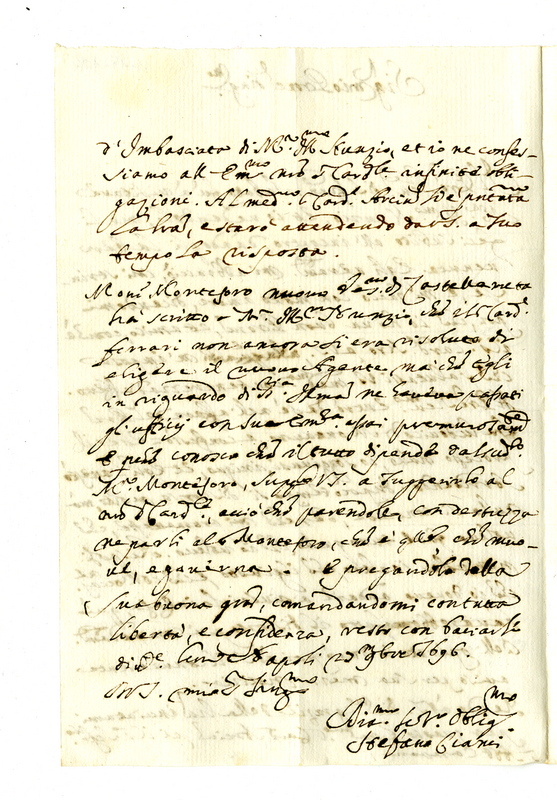 d'Imbasciata di M.r Ill.mo Nunzio, et io ne confes-
siamo all'Em.mo nro S. Card.le infinite obli-
gazioni. Al med.mo Card.l
la sua, e staro attendendo da V.S. a suo
tempo la risposta.
Mons. Montesoro nuovo Ves.vo di Castellaneta
ha scritto a Nunzio, che il Card.
Ferrari non ancora si era risoluto di
eligere il nuovo Agente, ma che Egli
in riguardo di ne haveva passati
gli ufficij con Sua Em.za assai premurosam.te
E però conosco che il tutto dipende dal sud.o
M.r Montesoro, suppl.co V.S. a suggerirlo al
nro S. Card.le, acciò che parendole, con destrezza
ne parli al Montesoro, che è q.llo che muo-
ve, e governa. E pregandola della
sua buona gra, comandandomi con tutta
libertà, e confidenza, resto con baciarle
di Napoli 27 9bre 1696.
Di V.S. mio S.
Div.mo Ser.r Oblig.mo
Stefano Cianci